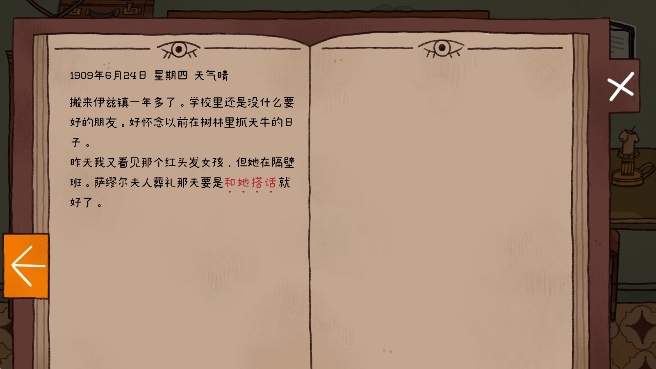 1909年6月24日 星期四 天气晴
搬来伊兹镇一年多了。学校里还是没什么要
好的朋友。好怀念以前在树林里抓天牛的日
子。
昨天我又看见那个红头发女孩，但她在隔壁
班。萨缪尔夫人葬礼那天要是和她搭话就
好了。